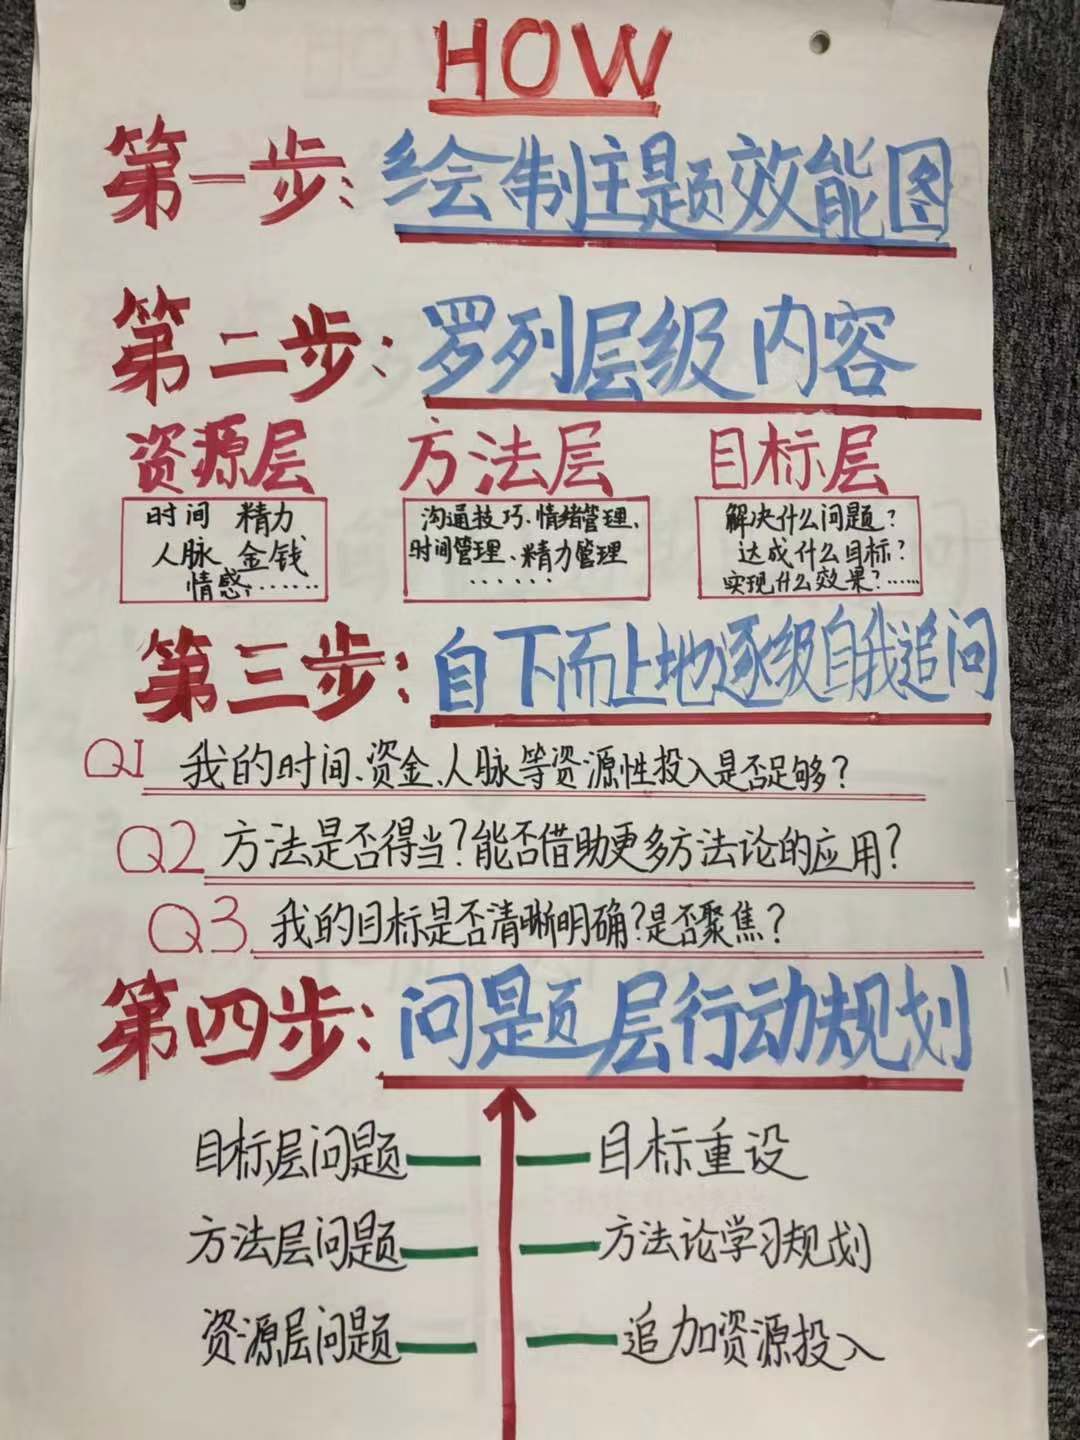 HOW
第一步：绘制主题效能图
第二步：罗列层级内容
资源层 方法层 目标层
时间 精力
人脉 金钱
情感，……
沟通技巧、情绪管理、
时间管理、精力管理
……
解决什么问题？
达成什么目标？
实现什么效果？……
第三步：自下而上地逐级自我追问
Q1 我的时间、资金、人脉等资源性投入是否足够？
Q2 方法是否得当？能否借助更多方法论的应用？
Q3 我的目标是否清晰明确？是否聚焦？
第四步：问题层行动规划
目标层问题 目标重设
方法层问题 方法论学习规划
资源层问题 追加资源投入